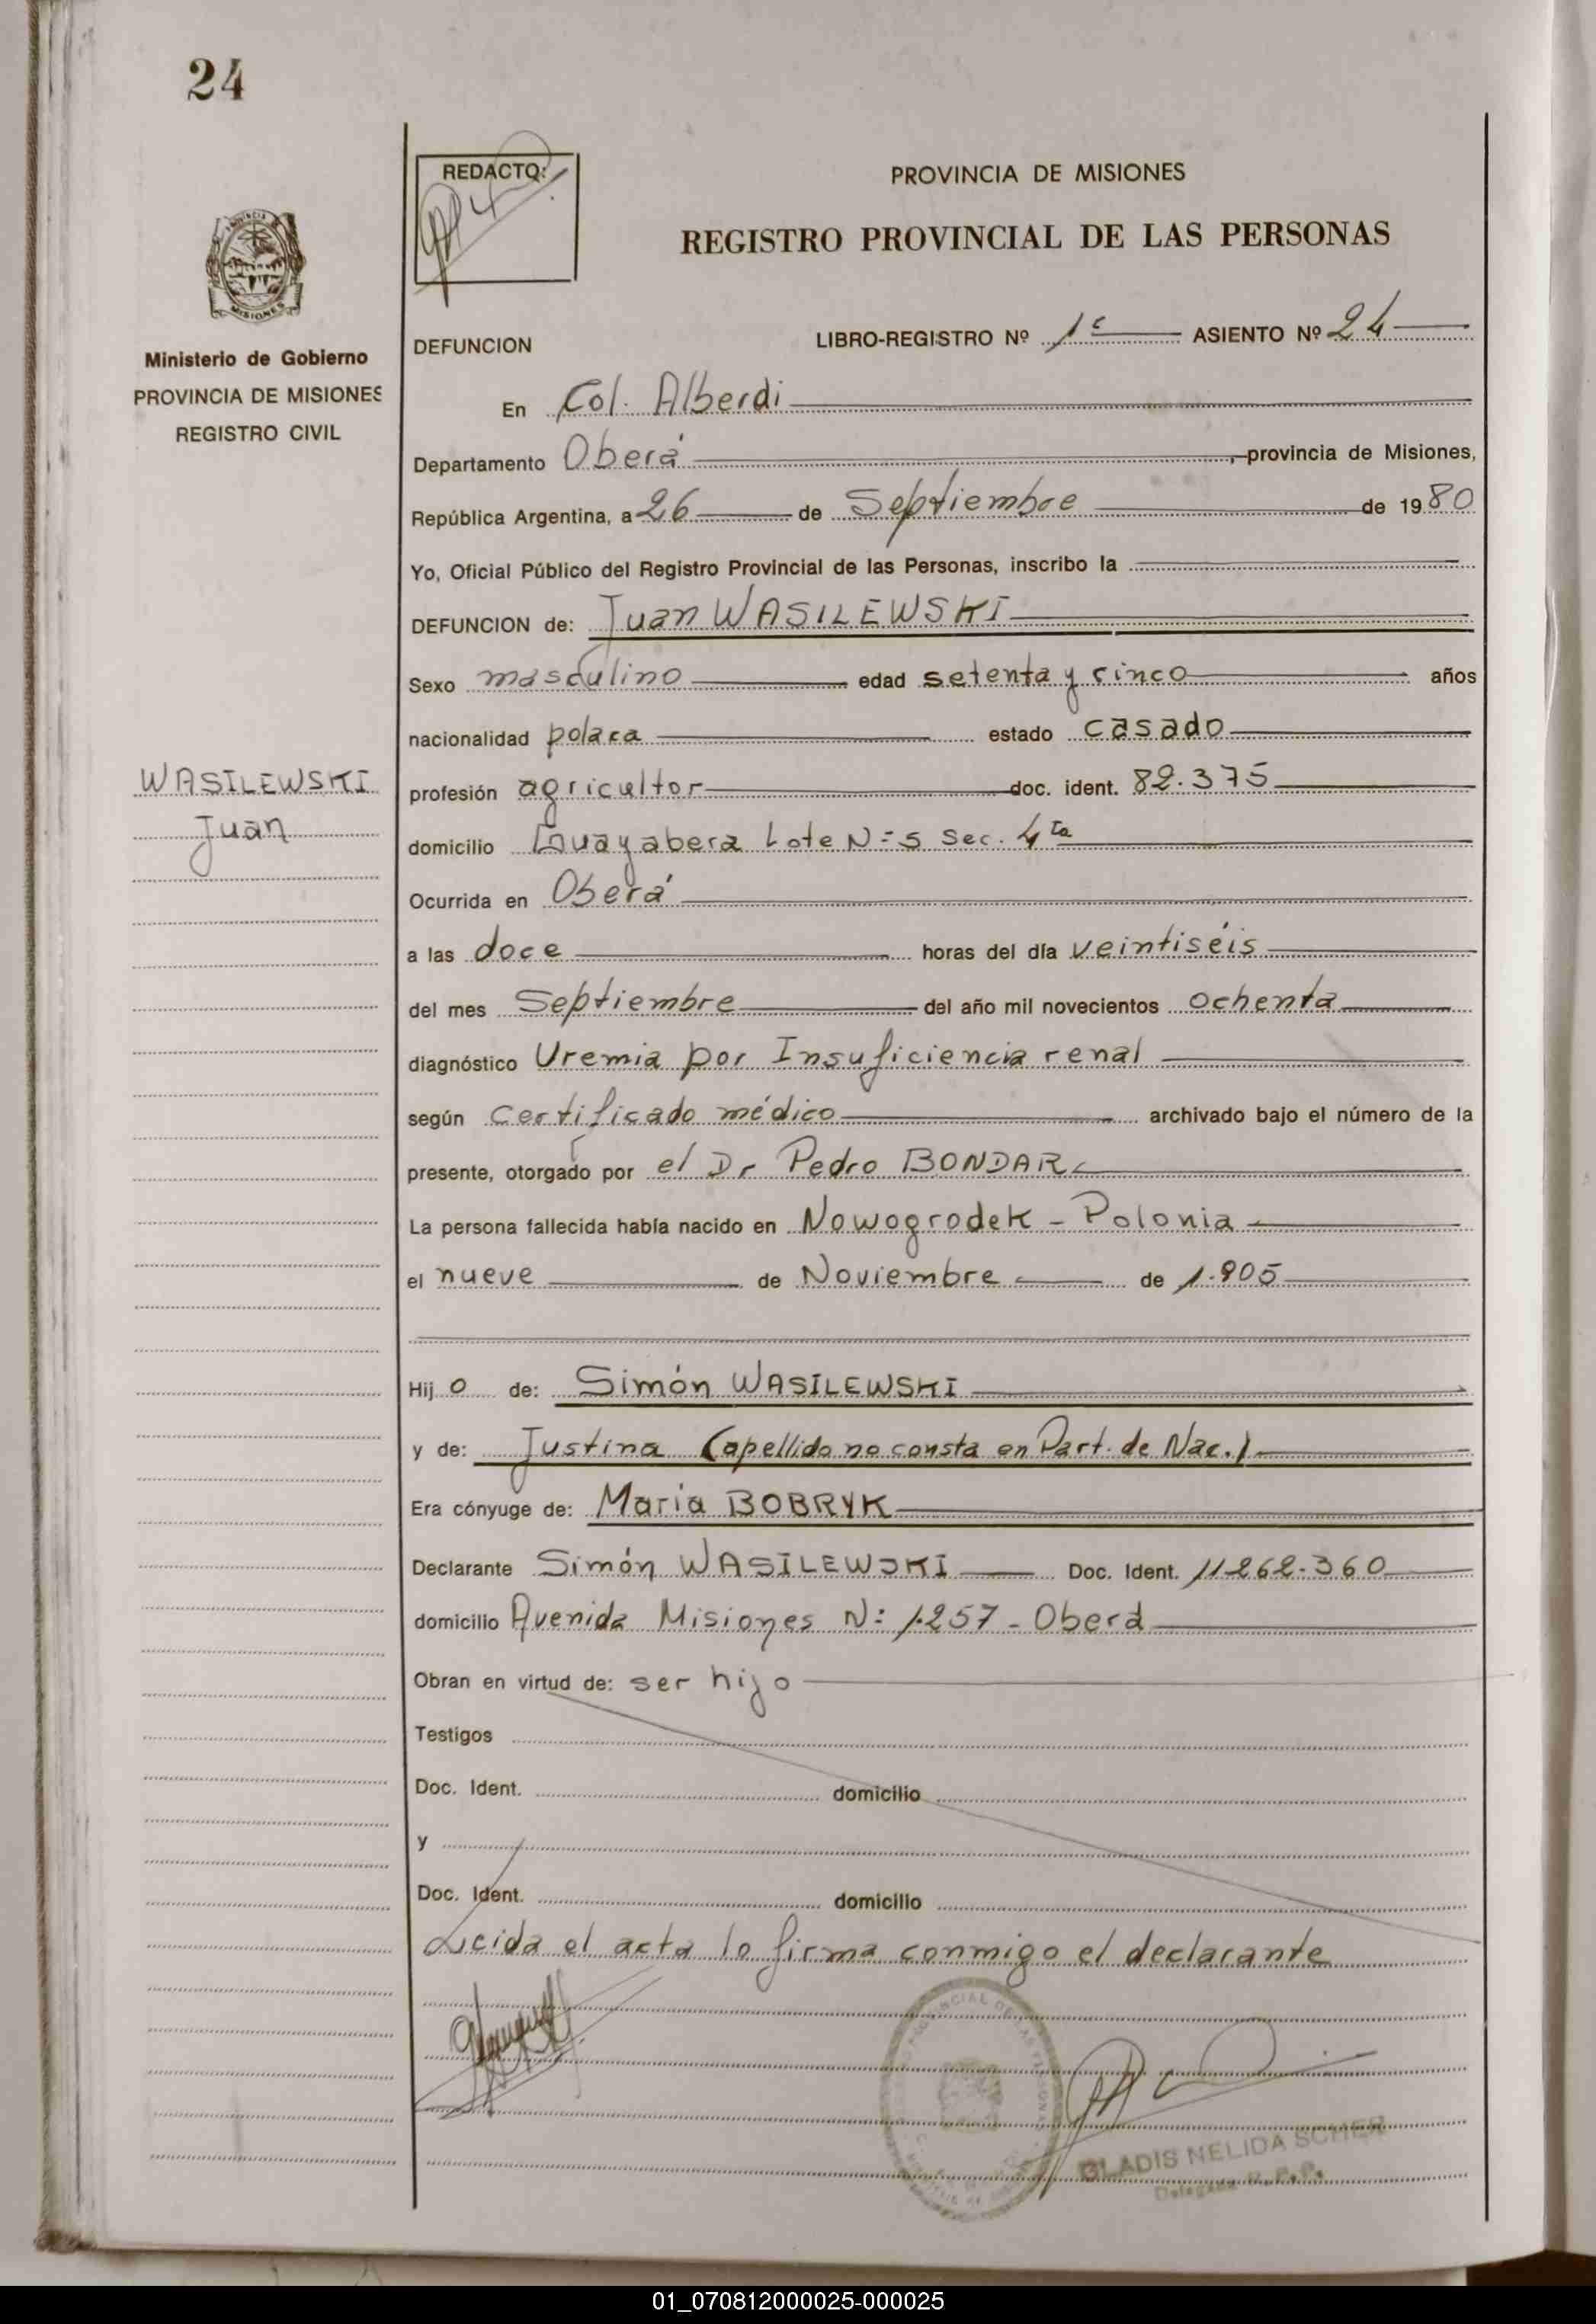 24
REDACTO:
PROVINCIA DE MISIONES
REGISTRO PROVINCIAL DE LAS PERSONAS
MISIONES
Ministerio de Gobierno
PROVINCIA DE MISIONES
REGISTRO CIVIL
DEFUNCION LIBRO-REGISTRO Nº 1º ASIENTO Nº 24
En Col. Alberdi
Departamento Oberá, provincia de Misiones,
República Argentina, a 26 de Septiembre de 1980
Yo, Oficial Público del Registro Provincial de las Personas, inscribo la
DEFUNCION de: Juan WASILEWSKI
Sexo masculino edad setenta y cinco años
nacionalidad polaca estado casado
WASILEWSKI
Juan
profesión agricultor doc. ident. 82.375
domicilio Guayabera Lote N=5 Sec. 4ta
Ocurrida en Oberá
a las doce horas del día veintiséis
del mes Septiembre del año mil novecientos ochenta
diagnóstico Uremia por Insuficiencia renal
según Certificado médico archivado bajo el número de la
presente, otorgado por el Dr Pedro BONDAR
La persona fallecida había nacido en Nowogrodek - Polonia
el nueve de Noviembre de 1.905
Hijo de: Simón WASILEWSKI
y de: Justina (apellido no consta en Part. de Nac.)
Era cónyuge de: Maria BOBRYK
Declarante Simón WASILEWSKI Doc. Ident. 11262.360
domicilio Avenida Misiones N: 1.257 - Oberá
Obran en virtud de: ser hijo
Testigos
Doc. Ident. domicilio
y
Doc. Ident. domicilio
Leida el acta lo firma conmigo el declarante
GLADIS NELIDA SCHER
Delegada R.P.P.
01_070812000025-000025